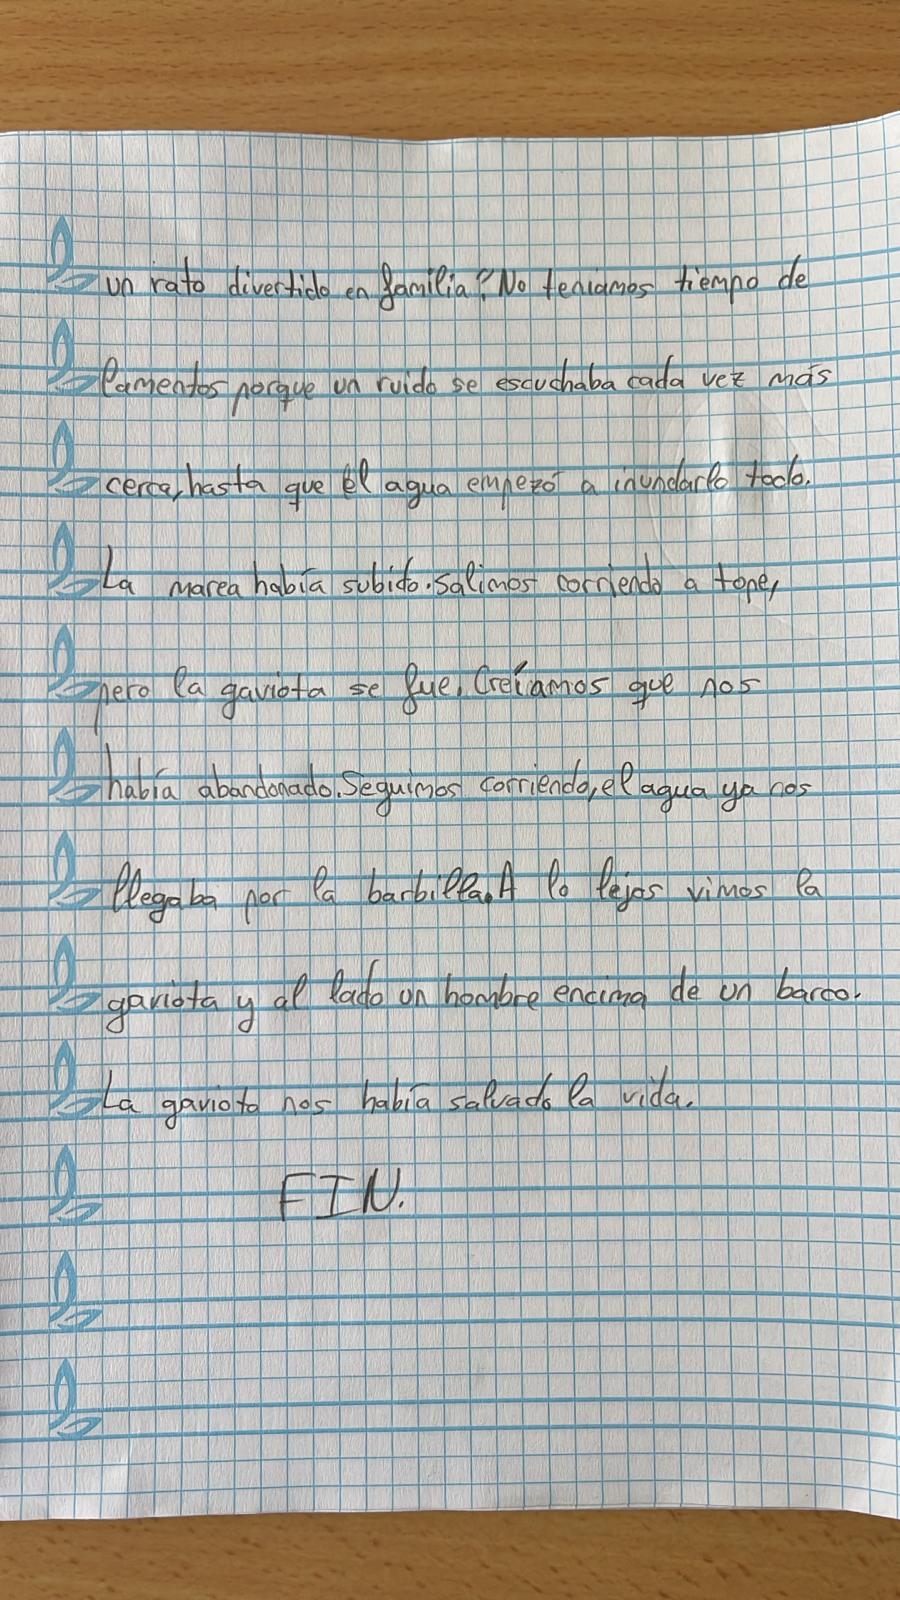 un rato divertido en familia? No teníamos tiempo de
lamentos porque un ruido se escuchaba cada vez más
cerca, hasta que el agua empezó a inundarlo todo.
La marea había subido. Salimos corriendo a tope,
pero la gaviota se fue. Creíamos que nos
había abandonado. Seguimos corriendo, el agua ya nos
llegaba por la barbilla. A lo lejos vimos la
gaviota y al lado un hombre encima de un barco.
La gaviota nos había salvado la vida.
FIN.